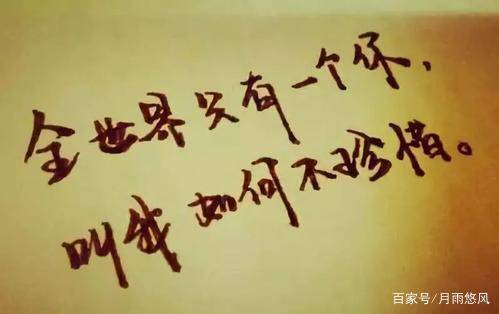 全世界只有一个你、
叫我如何不珍惜。
百家号/月雨悠风